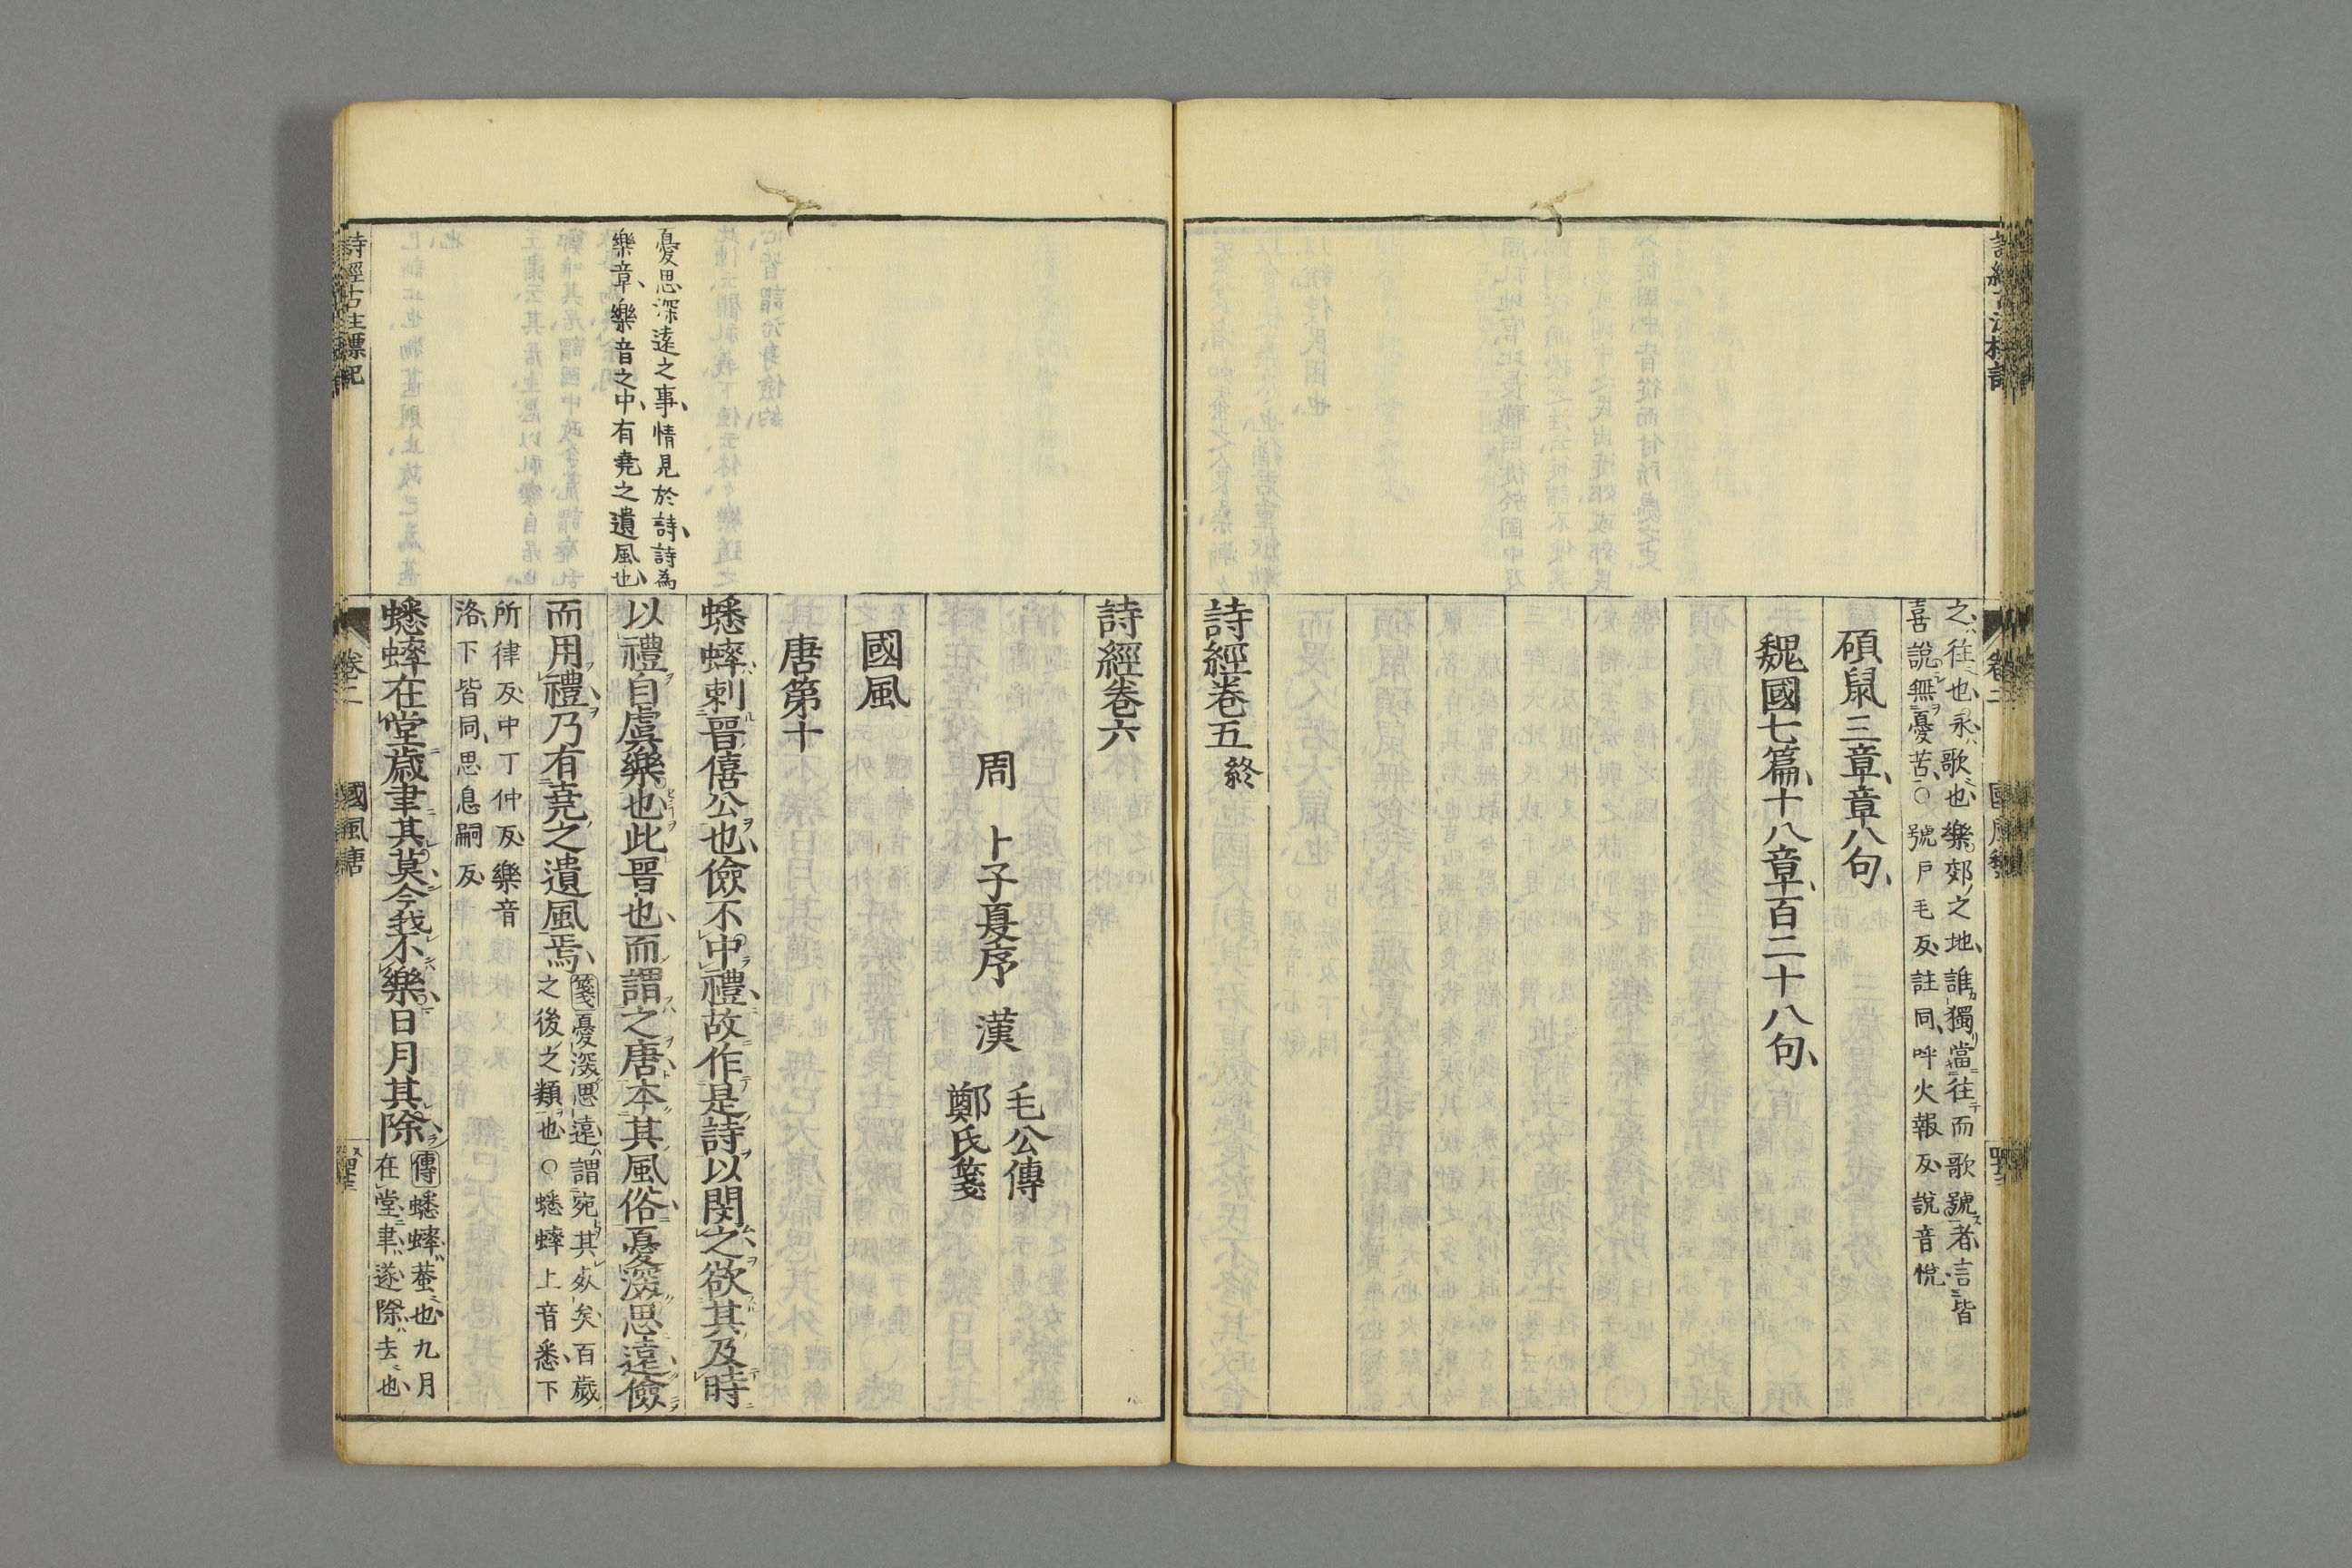 之往也永歌也樂郊之地誰獨當往而歌號者言皆
喜說無憂苦○號戶毛反註同呼火報反說音悅
碩鼠三章章八句
魏國七篇十八章百二十八句
詩經卷五終
詩經卷六
周　卜子夏序　漢　毛公傳
鄭氏箋
國風
唐第十
憂思深遠之事情見於詩詩為
樂章樂音之中有堯之遺風也
蟋蟀刺晉僖公也儉不中禮故作是詩以閔之欲其及時
以禮自虞樂也此晉也而謂之唐本其風俗憂深思遠儉
而用禮乃有堯之遺風焉
箋憂深思遠謂宛其死矣百歲
之後之類也○蟋蟀上音悉下
所律反中丁仲反樂音
洛下皆同思息嗣反
蟋蟀在堂歲聿其莫今我不樂日月其除
傳蟋蟀蛬也九月
在堂聿遂除去也
詩經古注標記
卷二
國風唐